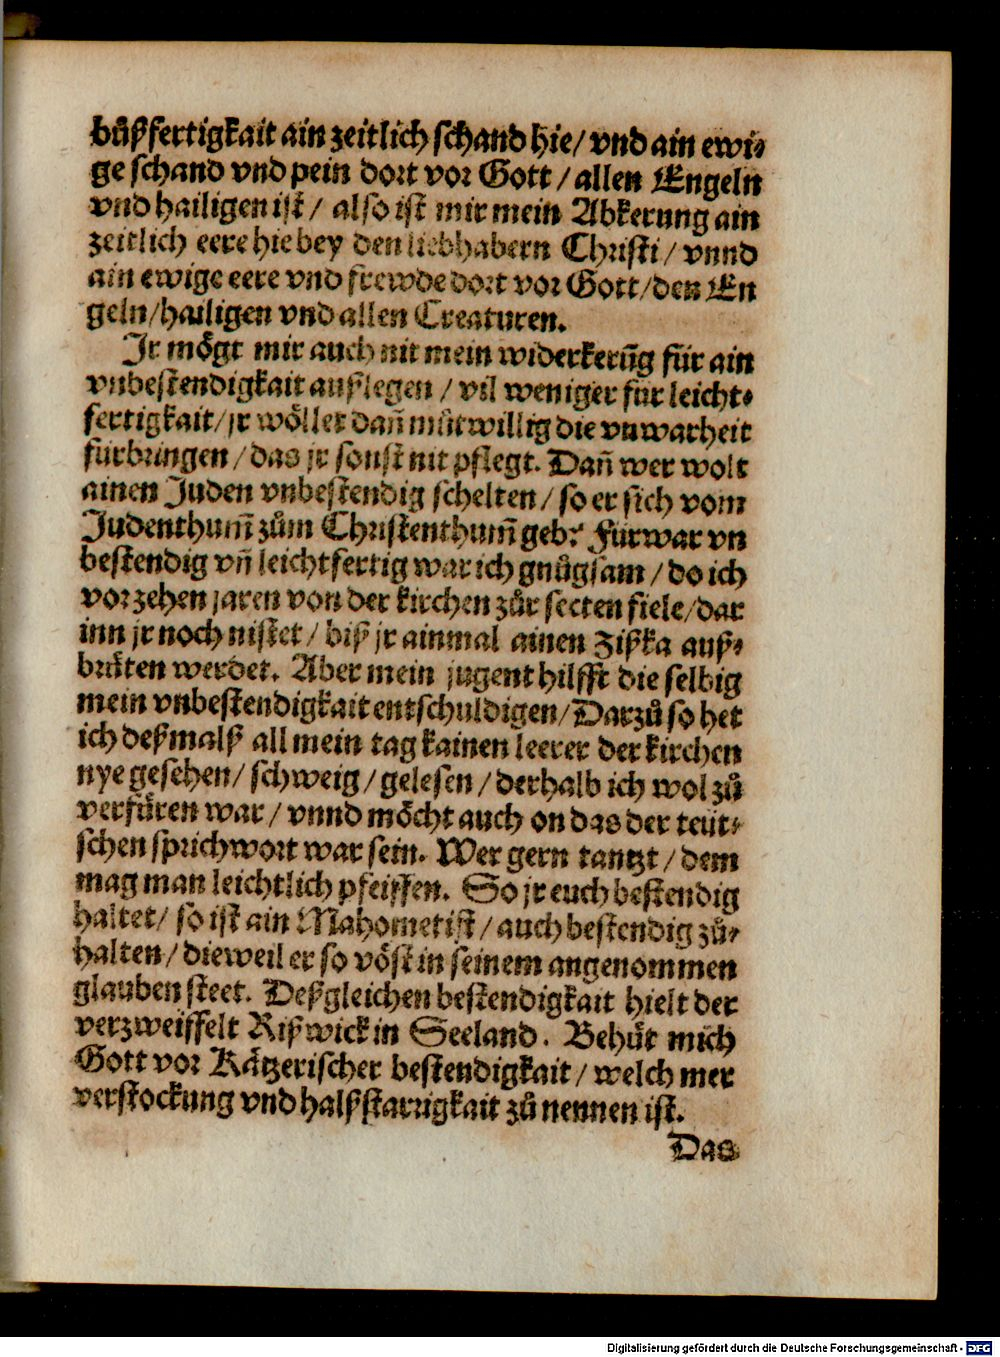 buͦßfertigkait ain zeitlich schand hie/ vnd ain ewi⸗
ge schand vnd pein dort vor Gott / allen Engeln
vnd hailigen ist / also ist mir mein Abkerung ain
zeitlich eere hie bey den liebhabern Christi / vnnd
ain ewige eere vnd frewde dort vor Gott/den En
geln/hailigen vnd allen Creaturen.
Jr moͤgt mir auch nit mein widerkerūg fuͤr ain
vnbestendigkait außlegen / vil weniger fur leicht⸗
fertigkait/ jr woͤller dañ muͦtwillig die vnwarheit
furbringen / das jr sonst nit pflegt. Dañ wer wolt
ainen Juden vnbestendig schelten / so er sich vom
Judenthum̄ zuͦm Christenthum̄ geb? Furwar vn
bestendig vñ leichtfertig war ich gnuͦgsam / do ich
vor zehen jaren von der kirchen zuͦr secten fiele/dar
inn jr noch nistet / biß jr ainmal ainen Zißka auß⸗
bruͤten werdet. Aber mein jugent hilfft die selbig
mein vnbestendigkait entschuldigen/ Darzuͦ so het
ich deßmalß all mein tag kainen leerer der kirchen
nye gesehen/ schweig / gelesen / derhalb ich wol zuͦ
verfuͤren war / vnnd moͤcht auch on das der teuͤt⸗
schen sprichwort war sein. Wer gern tantzt / dem
mag man leichtlich pfeiffen. So jr euch bestendig
haltet/ so ist ain Mahometist / auch bestendig zuͦ⸗
halten / dieweil er so voͤst in seinem angenommen
glauben steet. Deßgleichen bestendigkait hielt der
verzweiffelt Rißwick in Seeland. Behuͤt mich
Gott vor Kaͤtzerischer bestendigkait / welch mer
verstockung vnd halßstarrigkait zuͦ nennen ist.
Das
Digitalisierung gefördert durch die Deutsche Forschungsgemeinschaft - DFG